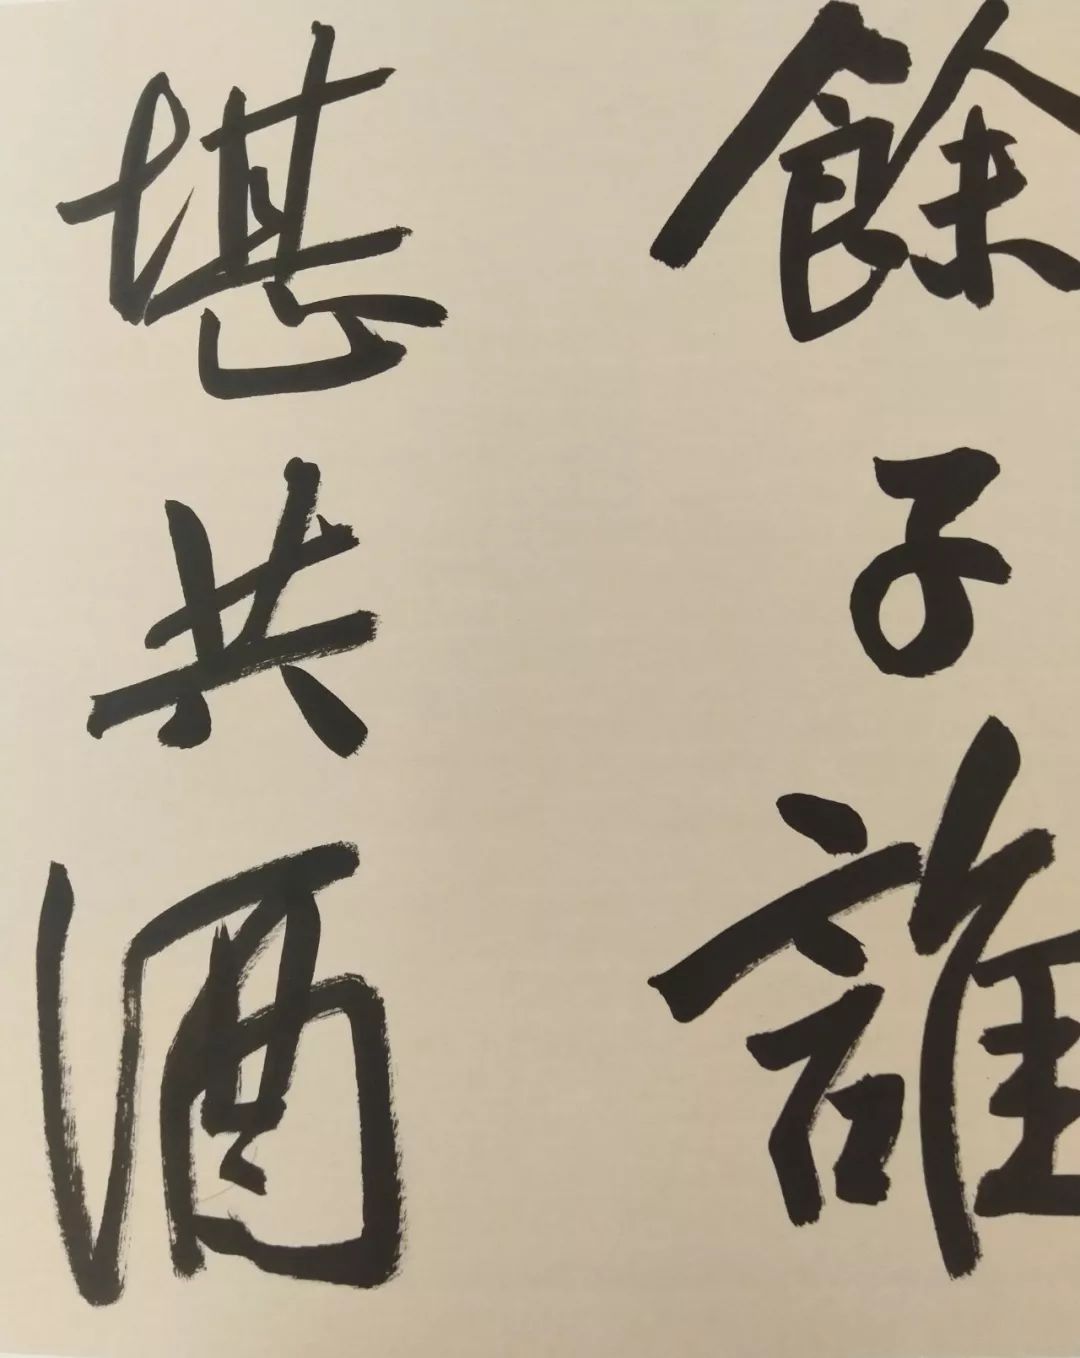 餘子誰
堪共酒